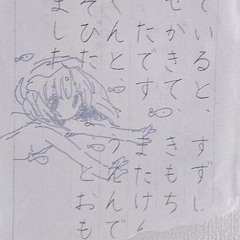 ていると、すずし
ぜがきて、きもち
たです。またけ
くんと、んで
そびたとおも
ました